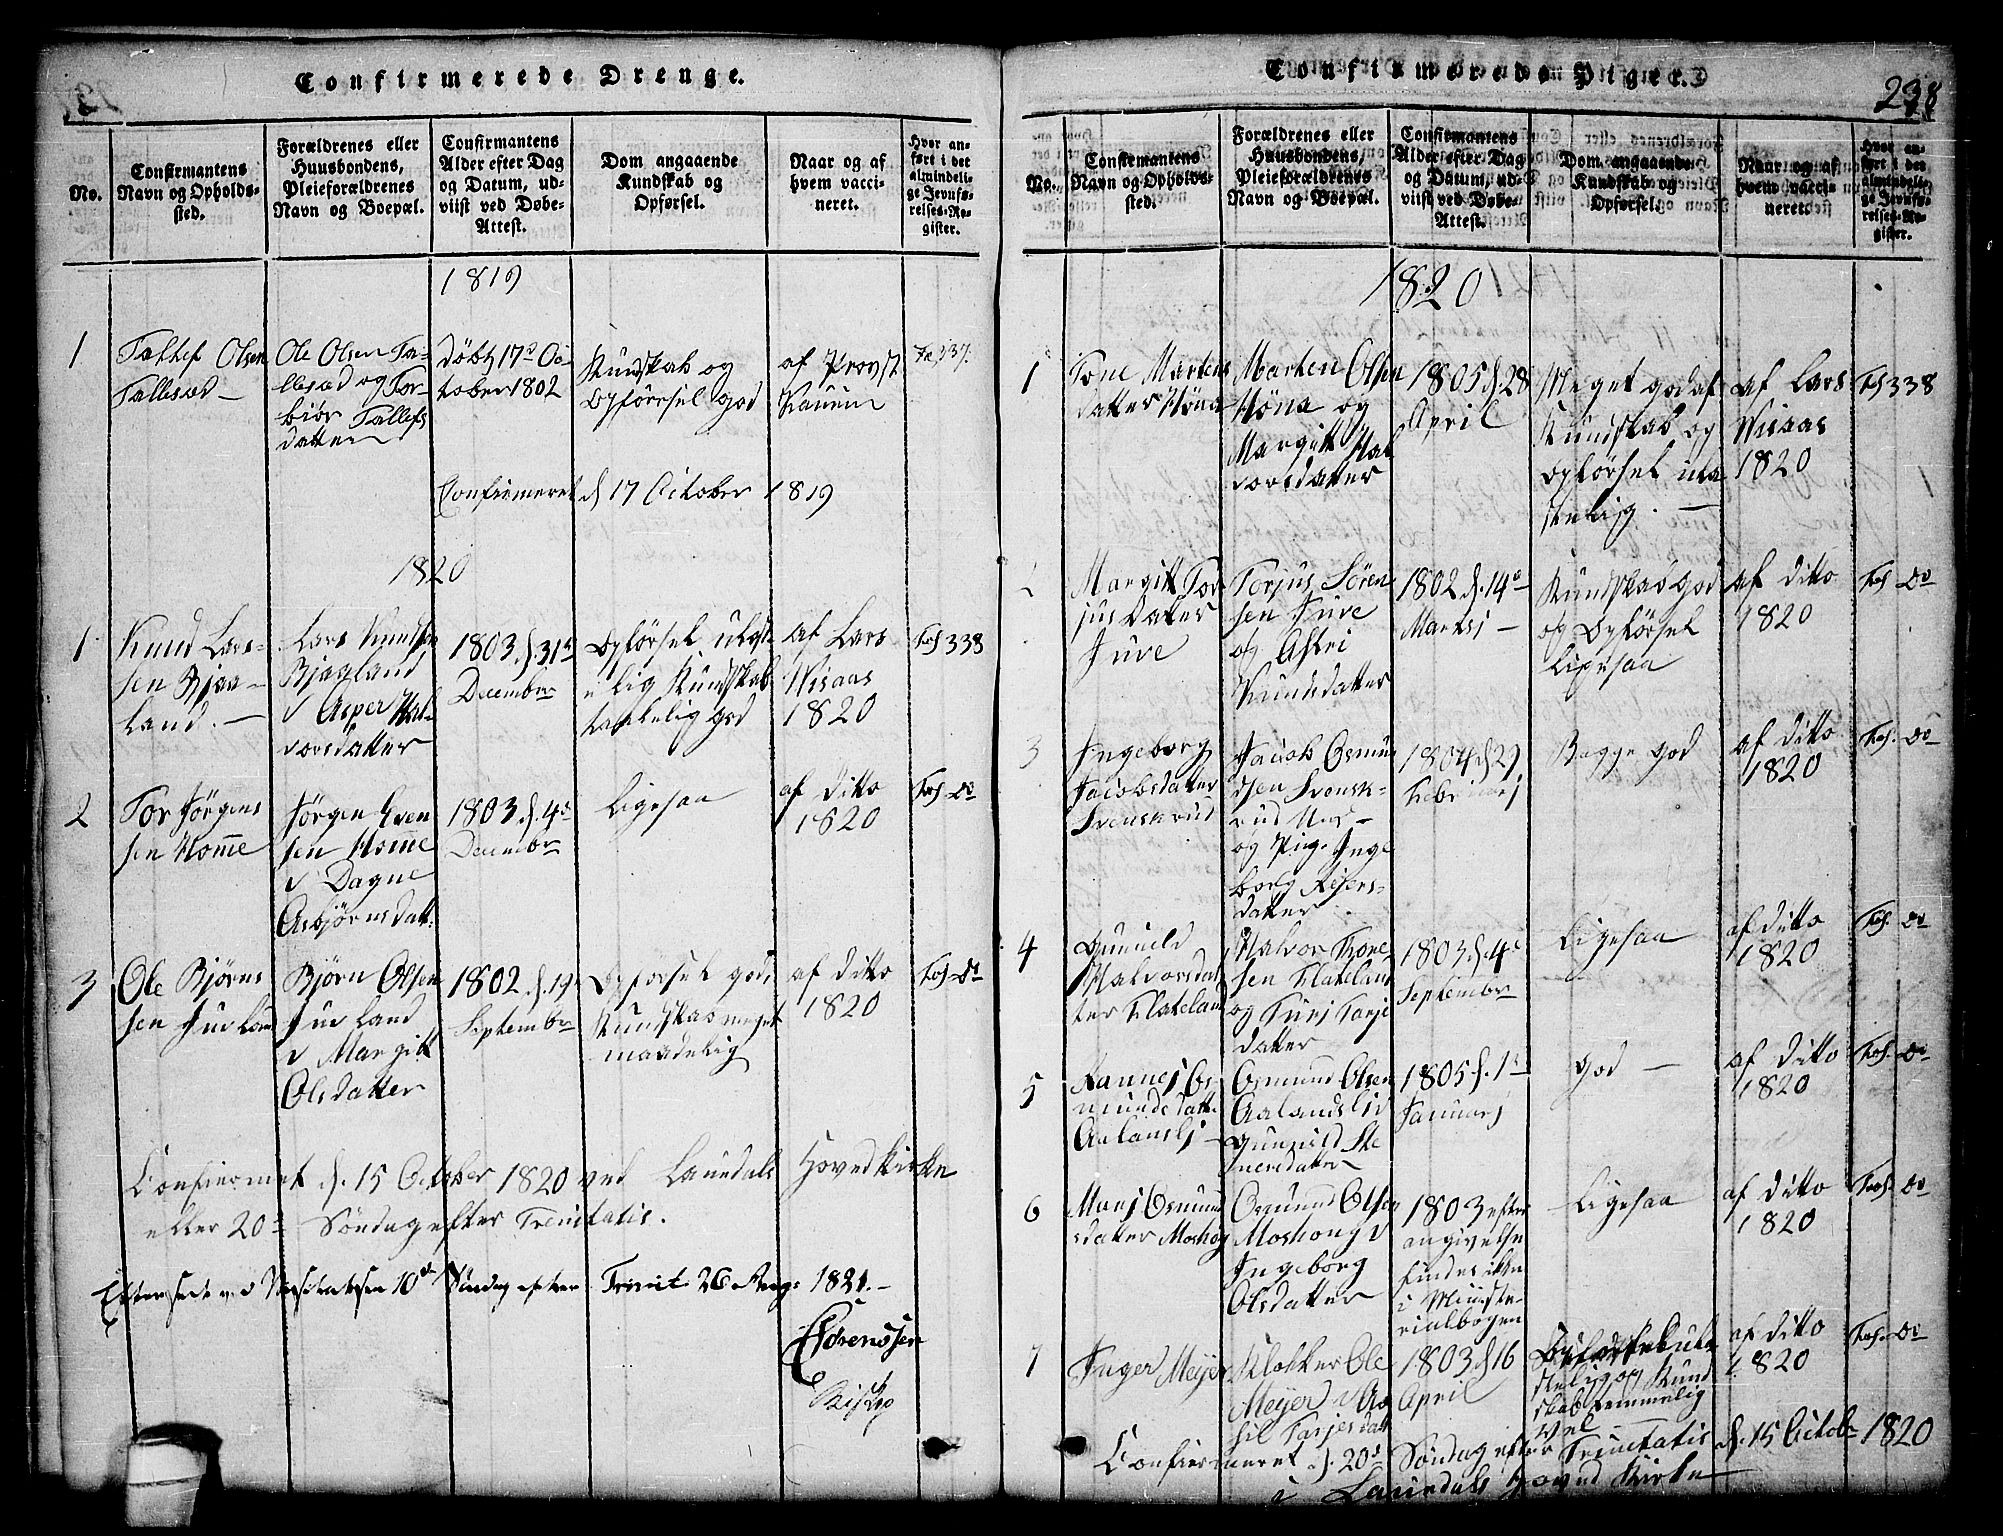 Confirmerede Drenge.
No.
Confirmantens
Navn og Opholds-
sted.
Forældrenes eller
Huusbondens,
Pleieforældrenes
Navn og Boepæl.
Confirmantens
Alder efter Dag
og Datum, ud-
viist ved Døbe-
Attest.
Dom angaaende
Kundskab og
Opførsel.
Naar og af
hvem vacci-
neret.
Hvor an-
ført i det
almindeli-
ge Jevnfø-
relses-Re-
gister.
1819
1
Tallef Olsen
Ole Olsen
Døbt 17de Oc-
tober 1802
Kundskab og
Opførsel god
af Provst
337.
og Tor-
biør Tallefs
datter
Confirmeret d. 17 October 1819
1820
1
Knud Lars-
sen Bjaa-
land. —
Lars Knudsen
Bjaaland
Asper Hal-
vorsdatter
1803 d. 31te
December
Opførsel ulaste-
lig Kundskab
taalelig god
af Lars
Wisaas
1820
Fol 338
2
Tor Jørgens
sen Homme
Jørgen Even
sen Homme
Dagne
Asbjørnsdatt.
1803 d. 4de
December
Ligesaa
af Ditto
1820
Fol. Do
3
Ole Bjørns
sen Juvland
Bjørn Olsen
Juvland
Margitt
Olsdatter
1802 d. 19
September
Opførsel god,
Kundskab meget
maadelig
af Ditto
1820
Fol. Do
Confiermet d. 15 October 1820 ved Laurdals Hovedkirke
eller 20de Søndag efter Trenitatis.
Efterseet ved Visitatsen 10de Søndag efter Trinit 26 Aug: 1821. —
Sørenssen
Biskop
Confirmerede Piger.
238
No.
Confirmantens
Navn og Opholds-
sted.
Forældrenes eller
Huusbondens,
Pleieforældrenes
Navn og Boepæl.
Confirmantens
Alder efter Dag
og Datum, ud-
viist ved Døbe-
Attest.
Dom angaaende
Kundskab og
Opførsel.
Naar og af
hvem vacci-
neret.
Hvor an-
ført i det
almindeli-
ge Jevnfø-
relses-Re-
gister.
1820
1
Tone Martens
datter Høna
Marten Olsen
Høna og
Margitt Hal
vorsdatter
1805 d. 28
April
Meget god af
Kundskab og
Opførsel ula
stelig. —
af Lars
Wisaas
1820
Fol 338
2
Margitt Tor
jusdatter
Juve
Torjus Søren
sen Juve
og Astri
Knudsdatter
1802 d. 14de
Martsj —
Kundskab god
og Opførsel
Ligesaa
af Ditto
1820
Fol Do
3
Ingeborg
Jacobsdatter
Svenskrud
Jacob Osmun
dsen Svensk-
rud
og Pig. Inge
borg
datter
1804 d. 29
Februarj
Begge god
af Ditto
1820
Fol. Do
4
Gunnild
Halvorsdat
ter Flateland
Halvor Tore
sen Flateland
og Turj Tarje
datter
1803 d. 4de
September
Ligesaa
af Ditto
1820
Fol. Do
5
Rannej Os
mundsdatt.
Aalandslj —
Osmund Olsen
Aalandslid
Gunnild Ste
nersdatter
1805 d. 1te
Januarj
God —
af Ditto
1820
Fol. Do
6
Marj Osmund
sdatter Moshog
Osmund Olsen
Moshoug v
Ingeborg
Olsdatter
1803 efter
angivelse
findes ikke
i Ministe-
rialbogen
Ligesaa
af Ditto
1820
Fol. Do
7
Inger Meijer
Klokker Ole
Meijer v Aa
sil Tarjesdatt
1803 d 16
April
Opførsel ula
stelig og Kund
skab temmelig
vel
af Ditto
1820
Fol. Do
Confiermeret d. 20de Søndag efter Trinitatis d. 15 Octob. 1820
i Laurdals Hoved Kirke